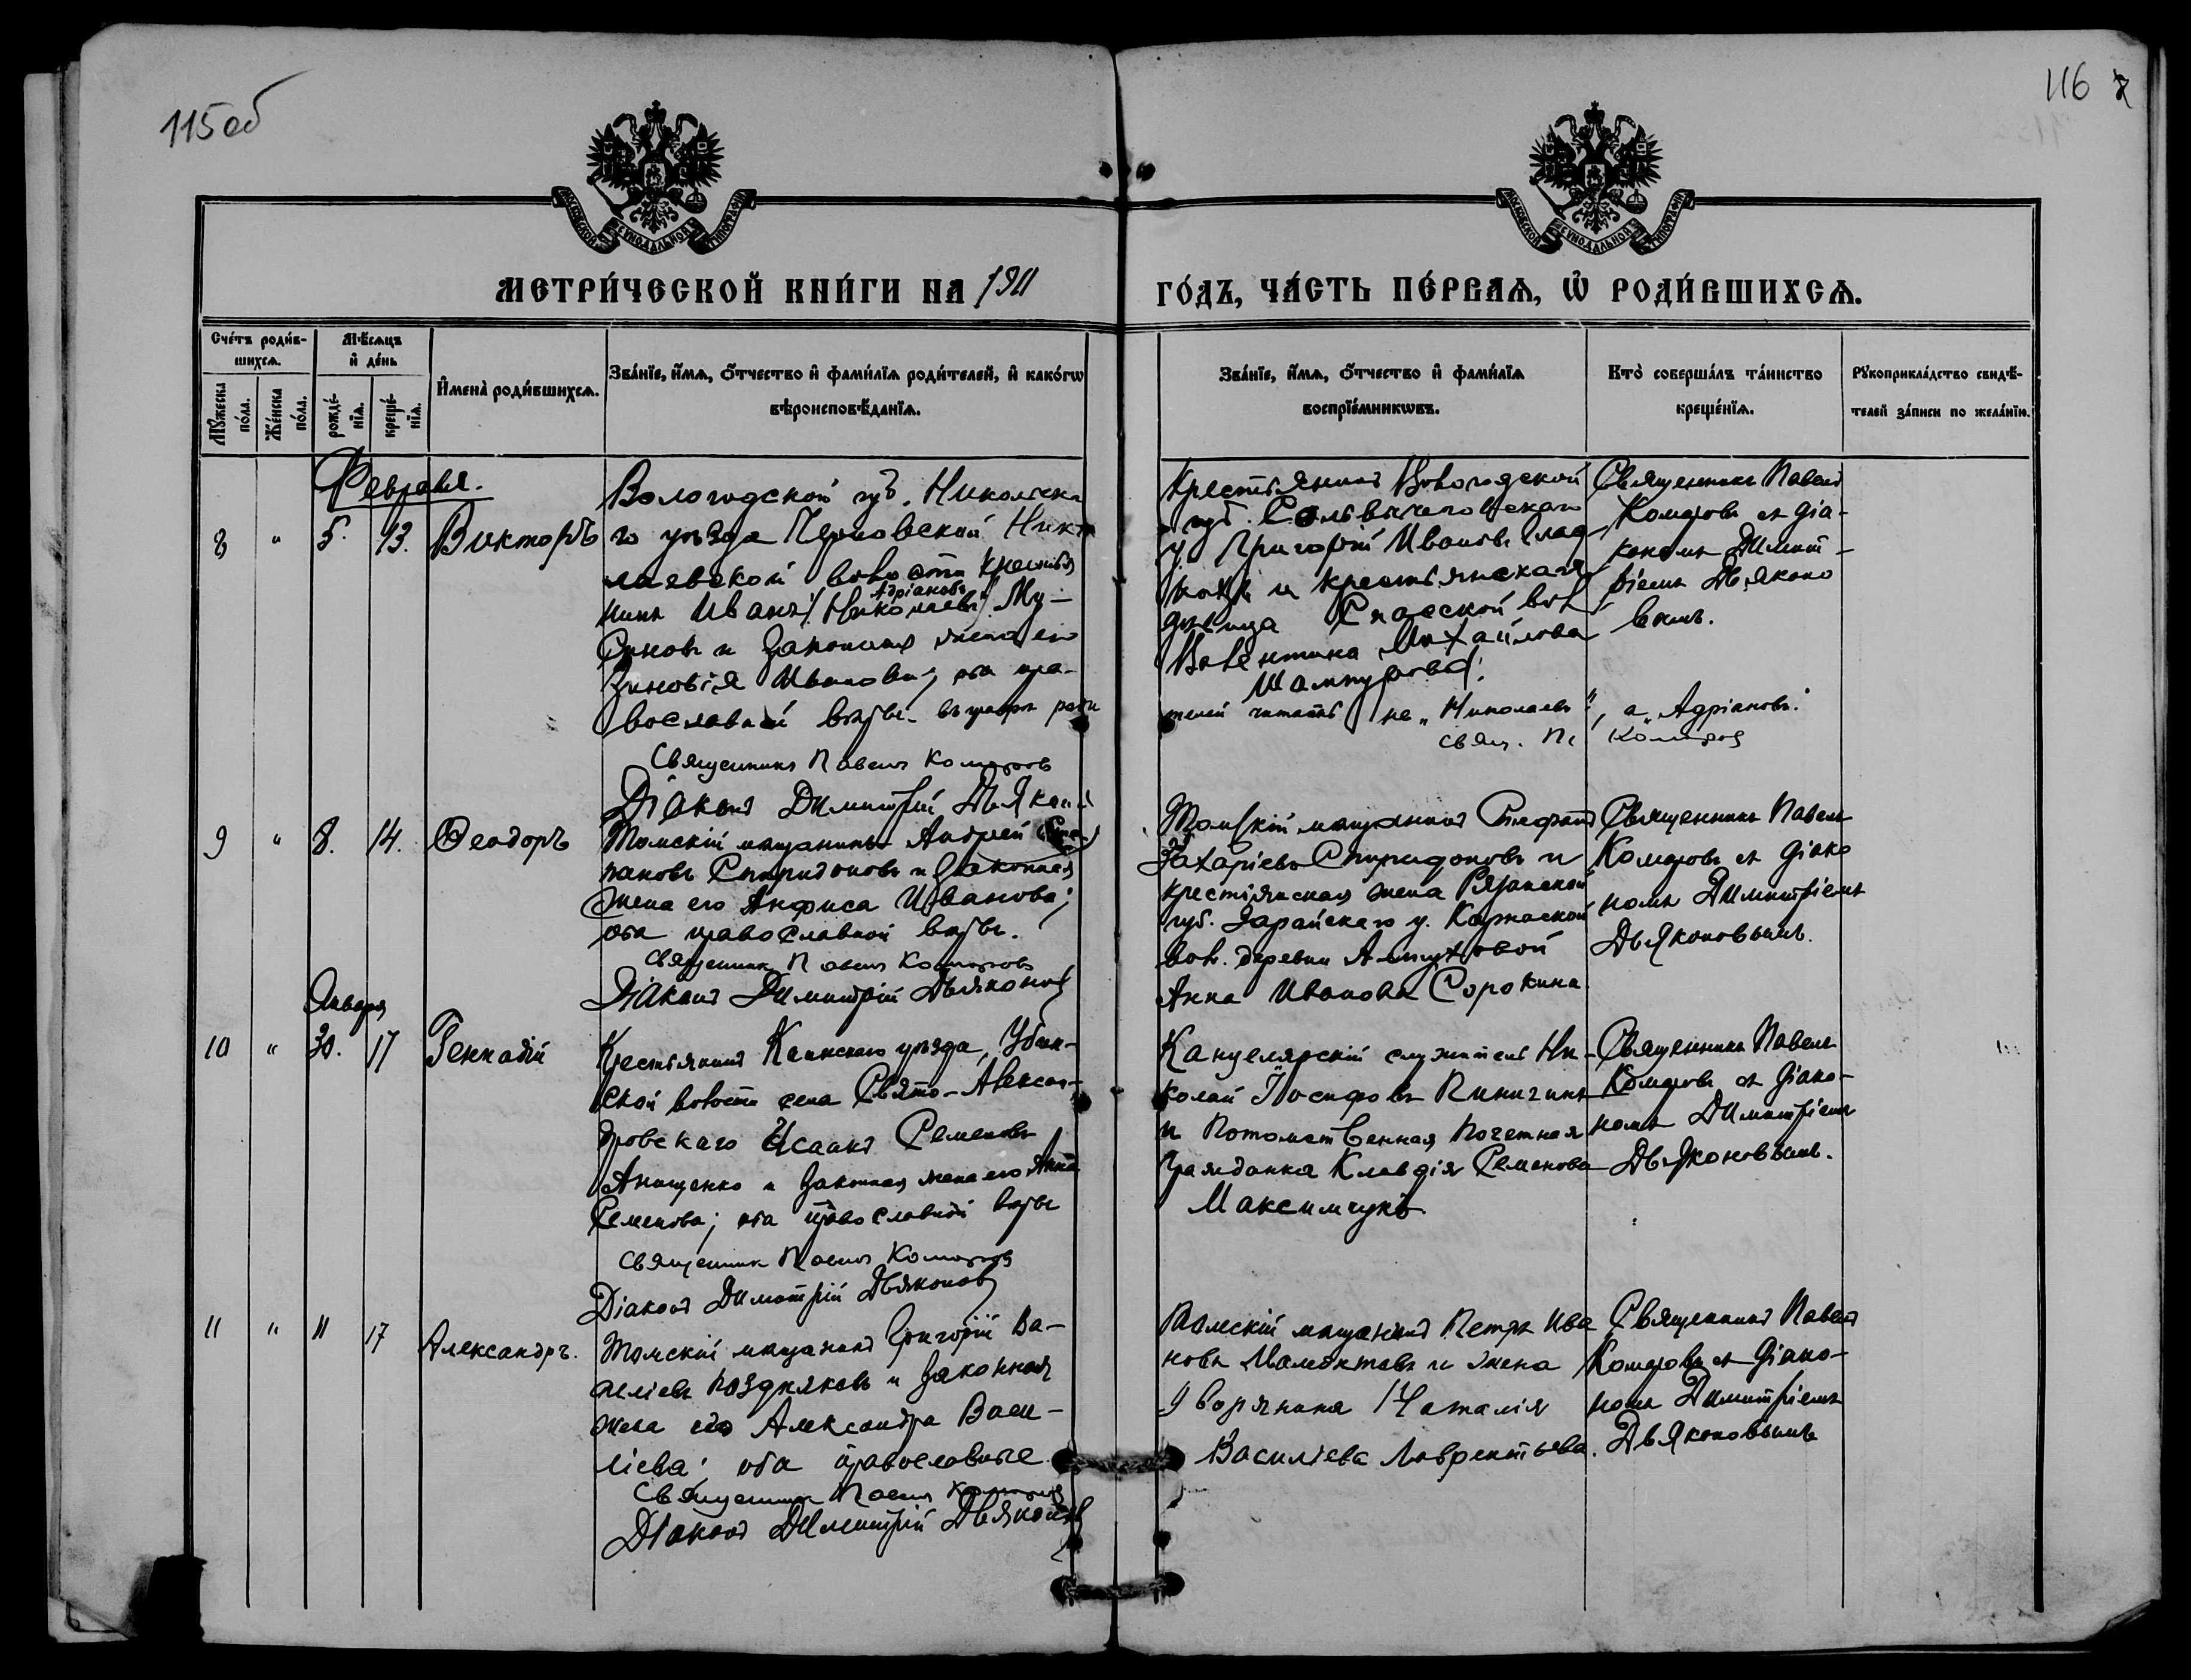 115 об
116
МОСКОВСКОЙ СѴНОДАЛЬНОЙ ТИПОГРАФІИ
МОСКОВСКОЙ СѴНОДАЛЬНОЙ ТИПОГРАФІИ
МЕТРИ́ЧЕСКОЙ КНИ́ГИ НА 1911 ГО́ДЪ, ЧА́СТЬ ПЕ́РВАѦ, Ѡ҆ РОДИ́ВШИХСѦ.
Сче́тъ роди́в-
шихсѧ.
Мѣ́сѧцъ
и҆ де́нь
Мꙋ́жеска
по́ла.
Же́нска
по́ла.
рожде́-
нїѧ.
креще́-
нїѧ.
И҆мена̀ роди́вшихсѧ.
Зва́нїе, и҆́мѧ, ѻ҆́тчество и҆ фами́лїѧ роди́телей, и҆ како́гѡ
вѣроисповѣ́данїѧ.
Зва́нїе, и҆́мѧ, ѻ҆́тчество и҆ фами́лїѧ
воспрїе́мникѡвъ.
Кто̀ соверша́лъ та́инство
креще́нїѧ.
Рꙋкоприкла́дство свидѣ́-
телей за́писи по жела́нїю.
Февраля.
8 " 5. 13. Викторъ
Вологодской губ. Никольска
го уѣзда Черновской Нико
лаевской волости крестья
нинъ Иванъ (Николаевъ) Му-
Адріановъ
синовъ и законная жена его
Зиновія Иванова; оба пра-
вославной вѣры. въ графѣ роди
Священникъ Павелъ Комаровъ
Діаконъ Димитрій Дьяконовъ
Крестьянинъ Вологодской
губ. Сольвычегодскаго
у. Григорій Ивановъ
и крестьянская
дѣвица Спасской вол
Валентина Михайлова
телей читать не „Николаевъ", а „Адріановъ".
Свящ. П. Комаровъ
Священникъ Павелъ
Комаровъ съ діа-
кономъ Димит-
ріемъ Дьяконо
вымъ.
9 " 8. 14. Ѳеодоръ
Томскій мѣщанинъ Андрей Сте
пановъ Спиридоновъ и законная
жена его Анфиса Иванова;
оба православной вѣры.
Священникъ Павелъ Комаровъ
Діаконъ Димитрій Дьяконовъ
Томскій мѣщанинъ Стефанъ
Захаріевъ Спиридоновъ и
крестьянская жена Рязанской
губ. Зарайскаго у.
вол. деревни
Анна Иванова Сорокина
Священникъ Павелъ
Комаровъ съ діако
номъ Димитріемъ
Дьяконовымъ.
Января
10 " 30. 17 Геннадій
Крестьянинъ Каинскаго уѣзда, Убин-
ской волости села Свято-Алексан-
дровскаго Исаакъ Семеновъ
Анищенко и законная жена его Анна
Семенова; оба православной вѣры
Священникъ Павелъ Комаровъ
Діаконъ Димитрій Дьяконовъ
Канцелярскій служитель Ни-
колай Іосифовъ Пинигинъ
и Потомственная Почетная
гражданка Клавдія Семенова
Максимчукъ
Священникъ Павелъ
Комаровъ съ діако-
номъ Димитріемъ
Дьяконовымъ.
11 " 11 17 Александръ.
Томскій мѣщанинъ Григорій Ва-
силіевъ Поздняковъ и законная
жена его Александра Васи-
ліева; оба православные
Священникъ Павелъ Комаровъ
Діаконъ Димитрій Дьяконовъ
Томскій мѣщанинъ Петръ Ива
новъ Мамонтовъ и жена
дворянина Наталія
Василіева Лаврентьева.
Священникъ Павелъ
Комаровъ съ діако-
номъ Димитріемъ
Дьяконовымъ